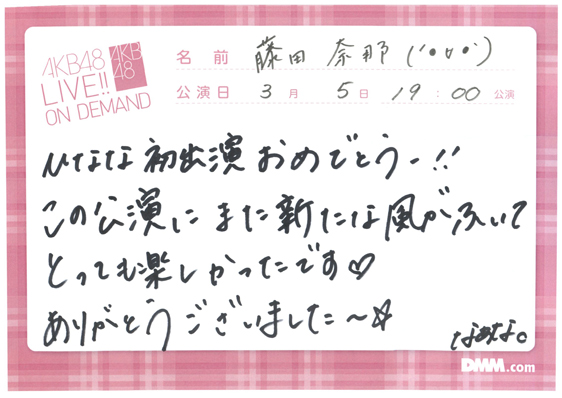 AKB48
LIVE!!
ON DEMAND
AKB
48
名前 藤田 奈那 ('•▿•')
公演日 3月 5日 19:00 公演
ひなな初出演おめでとうー!!
この公演にまた新たな風がふいて
とっても楽しかったです♡
ありがとうございました〜☆
なぁな。
DMM.com